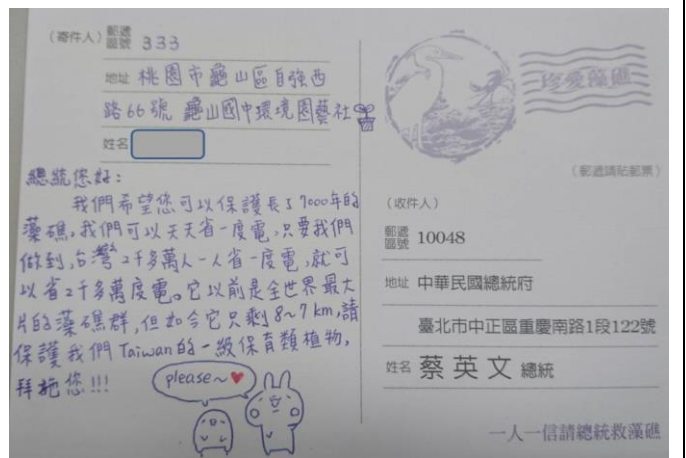 (寄件人) 郵遞區號 333
地址 桃園市龜山區自強西
路66號 龜山國中環境園藝社
姓名
總統您好:
我們希望您可以保護長了7000年的
藻礁,我們可以天天省一度電,只要我們
做到,台灣2千多萬人一人省一度電,就可
以省2千多萬度電。它以前是全世界最大
片的藻礁群,但如今它只剩8~7km,請
保護我們Taiwan的一級保育類植物,
拜托您!!!
please~♥
珍愛藻礁
(郵遞請貼郵票)
(收件人)
郵遞區號 10048
地址 中華民國總統府
臺北市中正區重慶南路1段122號
姓名 蔡英文 總統
一人一信請總統救藻礁